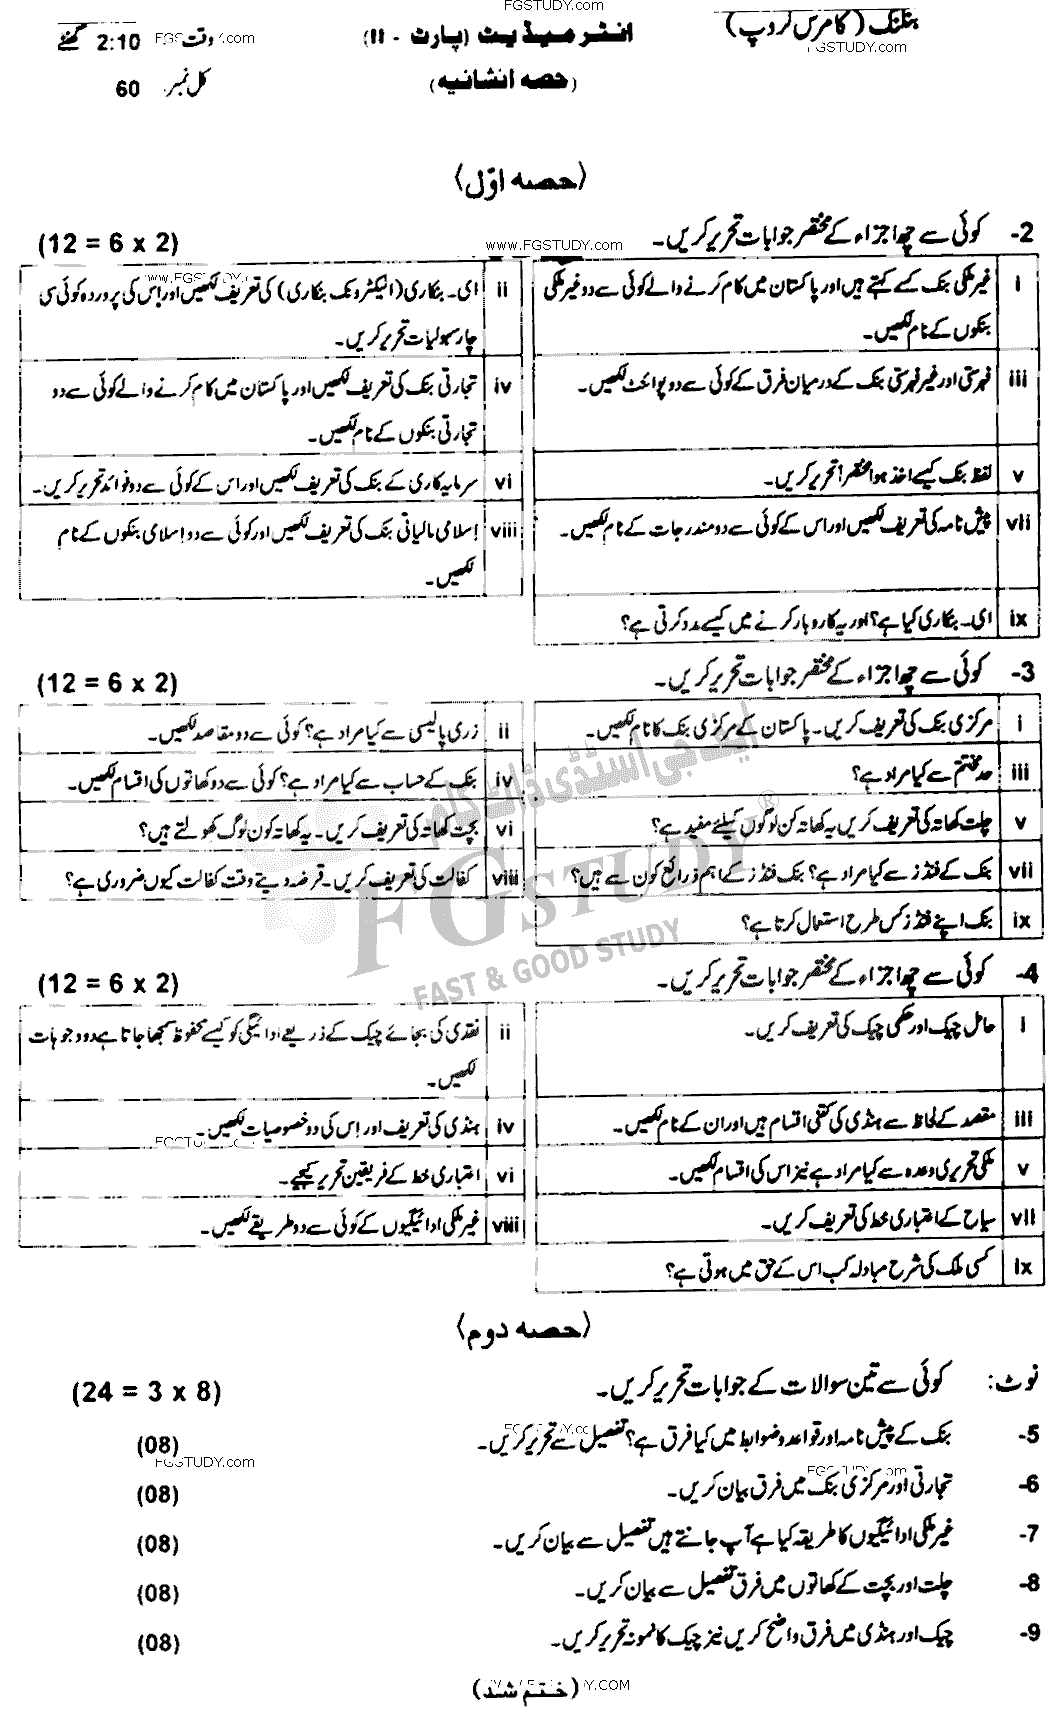 بنکنگ (کامرس گروپ)
انٹرمیڈیٹ (پارٹ - II)
وقت 2:10 گھنٹے
(حصہ انشائیہ)
کل نمبر 60
FGSTUDY.com
(حصہ اوّل)
2- کوئی سے چھ اجزاء کے مختصر جوابات تحریر کریں۔ (12 = 6 x 2)
www.FGSTUDY.com
i غیر ملکی بنک کسے کہتے ہیں اور پاکستان میں کام کرنے والے کوئی سے دو غیر ملکی
بنکوں کے نام لکھیں۔
ii ای۔ بنکاری (الیکٹرونک بنکاری) کی تعریف لکھیں اور اس کی پروردہ کوئی سی
چار سہولیات تحریر کریں۔
iii فہرستی اور غیر فہرستی بنک کے درمیان فرق کے کوئی سے دو پوائنٹ لکھیں۔
iv تجارتی بنک کی تعریف لکھیں اور پاکستان میں کام کرنے والے کوئی سے دو
تجارتی بنکوں کے نام لکھیں۔
v لفظ بنک کیسے اخذ ہوا مختصراً تحریر کریں۔
vi سرمایہ کاری کے بنک کی تعریف لکھیں اور اس کے کوئی سے دو فوائد تحریر کریں۔
vii پیش نامہ کی تعریف لکھیں اور اس کے کوئی سے دو مندرجات کے نام لکھیں۔
viii اسلامی مالیاتی بنک کی تعریف لکھیں اور کوئی سے دو اسلامی بنکوں کے نام
لکھیں۔
ix ای۔ بنکاری کیا ہے؟ اور یہ کاروبار کرنے میں کیسے مدد کرتی ہے؟
3- کوئی سے چھ اجزاء کے مختصر جوابات تحریر کریں۔ (12 = 6 x 2)
i مرکزی بنک کی تعریف کریں۔ پاکستان کے مرکزی بنک کا نام لکھیں۔
ii زری پالیسی سے کیا مراد ہے؟ کوئی سے دو مقاصد لکھیں۔
iii حد مختتم سے کیا مراد ہے؟
iv بنک کے حساب سے کیا مراد ہے؟ کوئی سے دو کھاتوں کی اقسام لکھیں۔
v چلت کھاتہ کی تعریف کریں یہ کھاتہ کن لوگوں کیلئے مفید ہے؟
vi بچت کھاتہ کی تعریف کریں۔ یہ کھاتہ کون لوگ کھولتے ہیں؟
vii بنک کے فنڈز سے کیا مراد ہے؟ بنک فنڈز کے اہم ذرائع کون سے ہیں؟
viii کفالت کی تعریف کریں۔ قرضہ دیتے وقت کفالت کیوں ضروری ہے؟
ix بنک اپنے فنڈز کس طرح استعمال کرتا ہے؟
ایف جی اسٹڈی ڈاٹ کام
FGSTUDY ®
FAST & GOOD STUDY
4- کوئی سے چھ اجزاء کے مختصر جوابات تحریر کریں۔ (12 = 6 x 2)
i حامل چیک اور حکمی چیک کی تعریف کریں۔
ii نقدی کی بجائے چیک کے ذریعے ادائیگی کو کیسے محفوظ سمجھا جاتا ہے دو وجوہات
لکھیں۔
iii مقصد کے لحاظ سے ہنڈی کی کتنی اقسام ہیں اور ان کے نام لکھیں۔
iv ہنڈی کی تعریف اور اس کی دو خصوصیات لکھیں۔
v ملکی تحریری وعدہ سے کیا مراد ہے نیز اس کی اقسام لکھیں۔
vi اعتباری خط کے فریقین تحریر کیجیے۔
vii سیاح کے اعتباری خط کی تعریف کریں۔
viii غیر ملکی ادائیگیوں کے کوئی سے دو طریقے لکھیں۔
ix کسی ملک کی شرح مبادلہ کب اس کے حق میں ہوتی ہے؟
(حصہ دوم)
نوٹ: کوئی سے تین سوالات کے جوابات تحریر کریں۔ (24 = 3 x 8)
5- بنک کے پیش نامہ اور قواعد و ضوابط میں کیا فرق ہے؟ تفصیل سے تحریر کریں۔ (08)
FGSTUDY.com
6- تجارتی اور مرکزی بنک میں فرق بیان کریں۔ (08)
7- غیر ملکی ادائیگیوں کا طریقہ کیا ہے آپ جانتے ہیں تفصیل سے بیان کریں۔ (08)
8- چلت اور بچت کے کھاتوں میں فرق تفصیل سے بیان کریں۔ (08)
9- چیک اور ہنڈی میں فرق واضح کریں نیز چیک کا نمونہ تحریر کریں۔ (08)
(ختم شد)